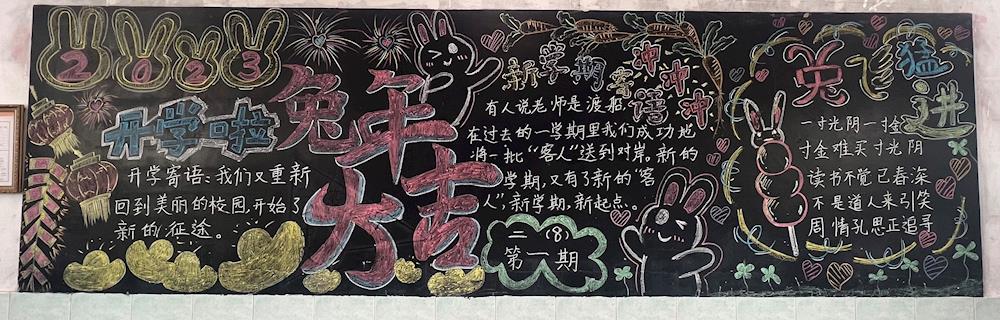 2023
开学啦
开学寄语：我们又重新
回到美丽的校园，开始了
新的征途。
兔年
大吉
新学期寄语
冲冲冲
有人说老师是渡船
在过去的一学期里我们成功地
将一批“客人”送到对岸。新的
学期，又有了新的“客
人”，新学期，新起点。
二（8）
第一期
兔飞猛进
一寸光阴一寸金
寸金难买寸光阴
读书不觉已春深
不是道人来引笑
周情孔思正追寻